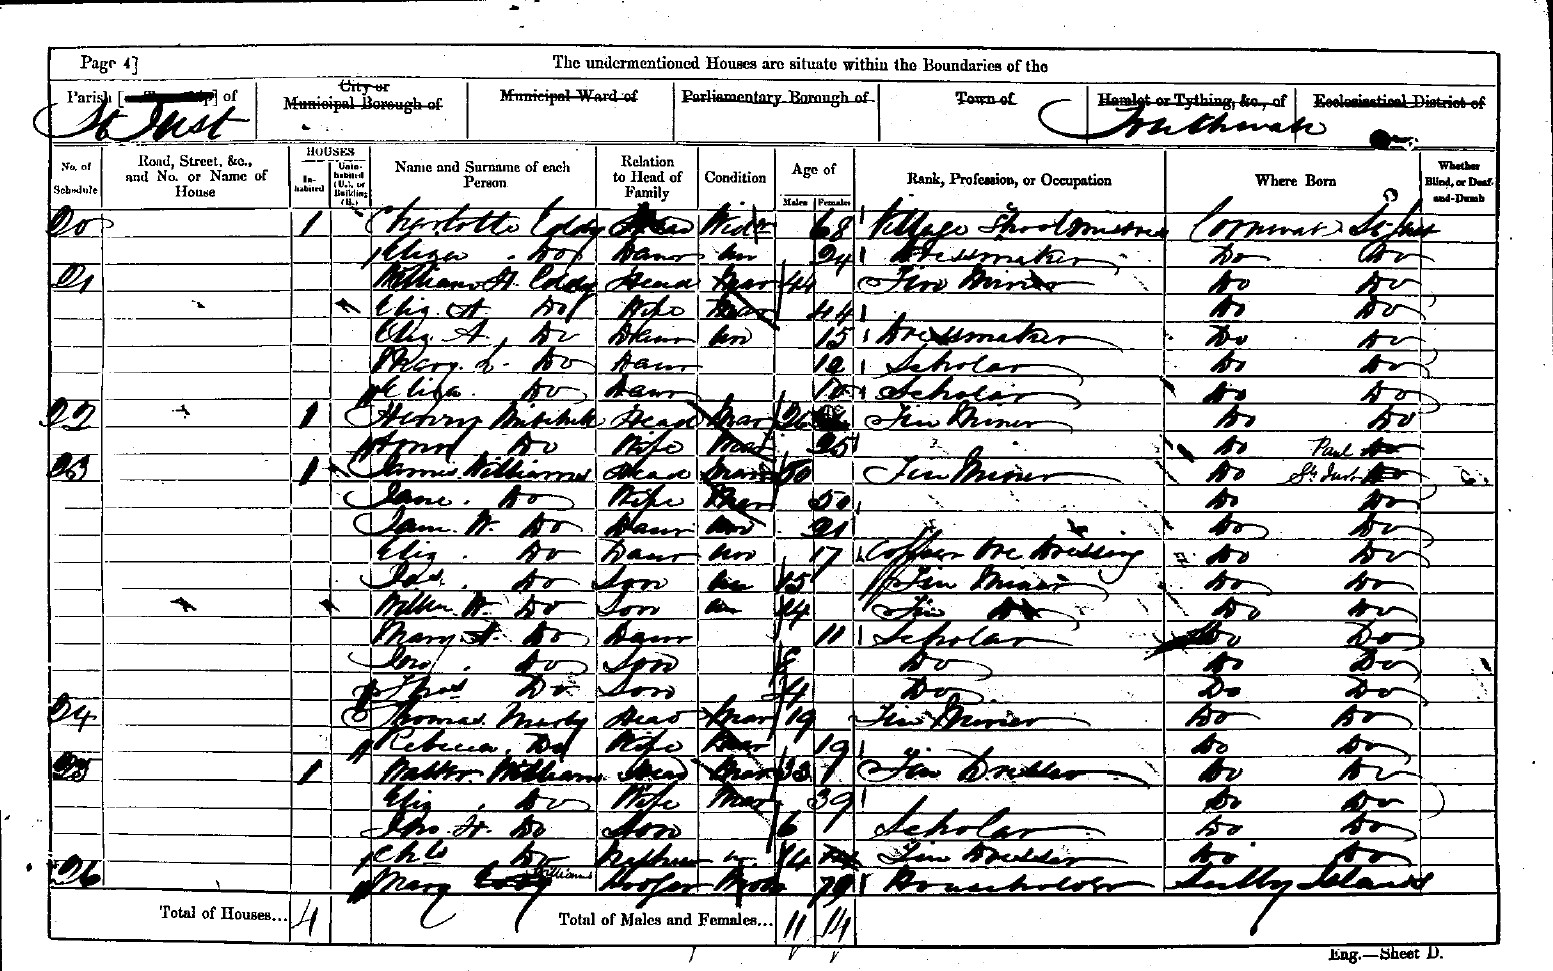 Page 4]
The undermentioned Houses are situate within the Boundaries of the
Parish [Township] of St Just
City or Municipal Borough of
Municipal Ward of
Parliamentary Borough of
Town of
Hamlet or Tything, &c., of
Ecclesiastical District of
No. of Schedule
Road, Street, &c., and No. or Name of House
HOUSES
Inhabited
Uninhabited (U.), or Building (B.)
Name and Surname of each Person
Relation to Head of Family
Condition
Age of
Males Females
Rank, Profession, or Occupation
Where Born
Whether Blind, or Deaf-and-Dumb
20 1 Charlotte Eddy Head Widr 68 Village School Mistress Cornwall St Just
Eliza Do Daur Un 24 Dressmaker Do Do
21 William H. Eddy Head Mar 44 Tin Miner Do Do
Eliz. A. Do Wife Mar 44 Do Do
Eliz A. Do Daur Un 15 Dressmaker Do Do
Mary L. Do Daur 12 Scholar Do Do
Eliza. Do Daur 10 Scholar Do Do
22 1 Henry Mitchell Head Mar 26 Tin Miner Do Do
Do Wife Mar 25 Do Paul Do
23 1 James Williams Head Mar 50 Tin Miner Do St Just Do
Jane. Do Wife Mar 50 Do Do
Jam. W. Do Daur Un 21 Do Do
Eliz. Do Daur Un 17 Copper Ore Dressing Do Do
Do Son Un 15 Tin Miner Do Do
Willm W. Do Son Un 14 Tin Do Do Do
Mary A. Do Daur 11 Scholar Do Do
Jno. Do Son 8 Do Do Do
Thos Do Son 4 Do Do Do
24 Thomas Head Mar 19 Tin Miner Do Do
Rebecca. Do Wife Mar 19 Do Do
25 1 Walter Williams Head Mar 33 Tin Dresser Do Do
Eliz. Do Wife Mar 39 Do Do
Jno. H. Do Son 6 Scholar Do Do
Do Nephew Un 14 Tin Dresser Do Do
26 Mary Williams Lodger 79 Householder Scilly Islands
Total of Houses... 4
Total of Males and Females... 11 14
Eng.—Sheet D.